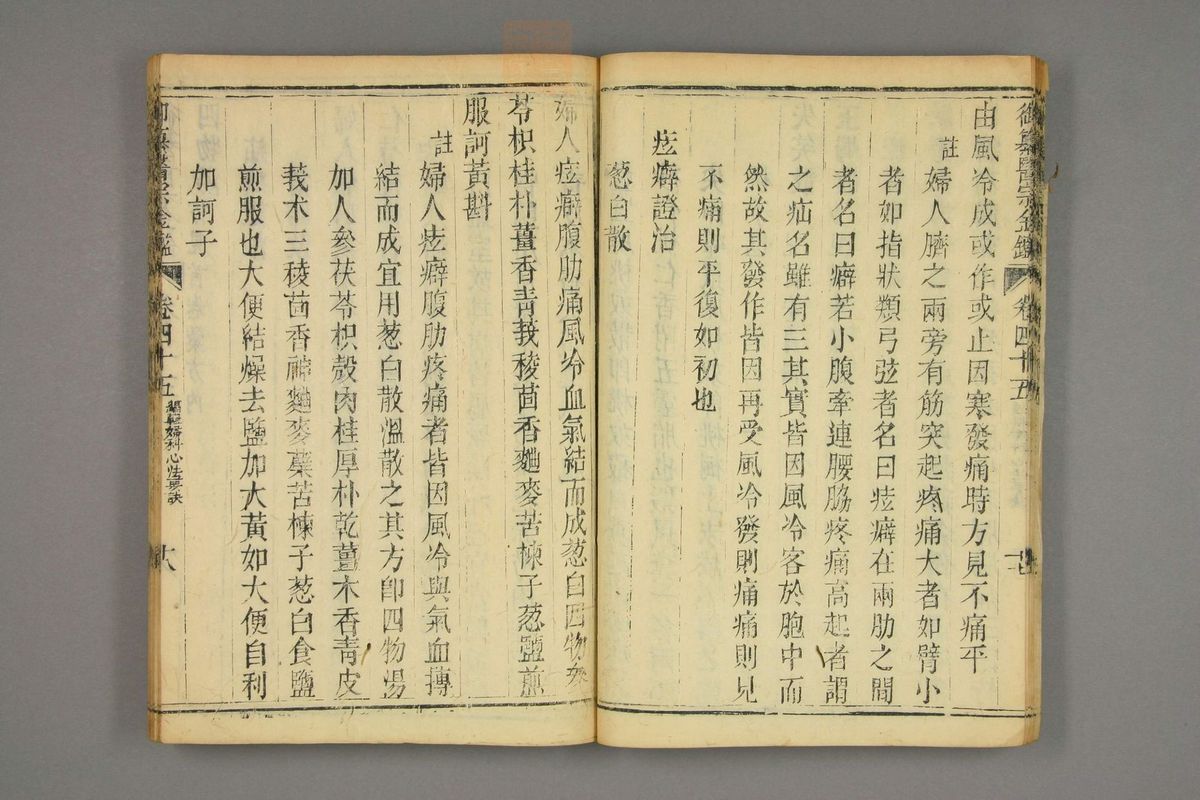 御纂醫宗金鑑 卷四十五 十七
由風冷成或作或止因寒發痛時方見不痛平
註
婦人臍之兩旁有筋突起疼痛大者如臂小
者如指狀類弓弦者名曰痃癖在兩肋之間
者名曰癖若小腹牽連腰脇疼痛高起者謂
之疝名雖有三其實皆因風冷客於胞中而
然故其發作皆因再受風冷發則痛痛則見
不痛則平復如初也
痃癖證治
葱白散
婦人痃癖腹肋痛風冷血氣結而成葱白四物參
苓枳桂朴薑香青莪稜茴香麯麥苦楝子葱鹽煎
服訶黃斟
註
婦人痃癖腹肋疼痛者皆因風冷與氣血摶
結而成宜用葱白散溫散之其方卽四物湯
加人參茯苓枳殼肉桂厚朴乾薑木香青皮
莪朮三稜茴香神麯麥蘗苦楝子葱白食鹽
煎服也大便結燥去鹽加大黃如大便自利
加訶子
御纂醫宗金鑑 卷四十五 編輯婦科心法要訣 十八